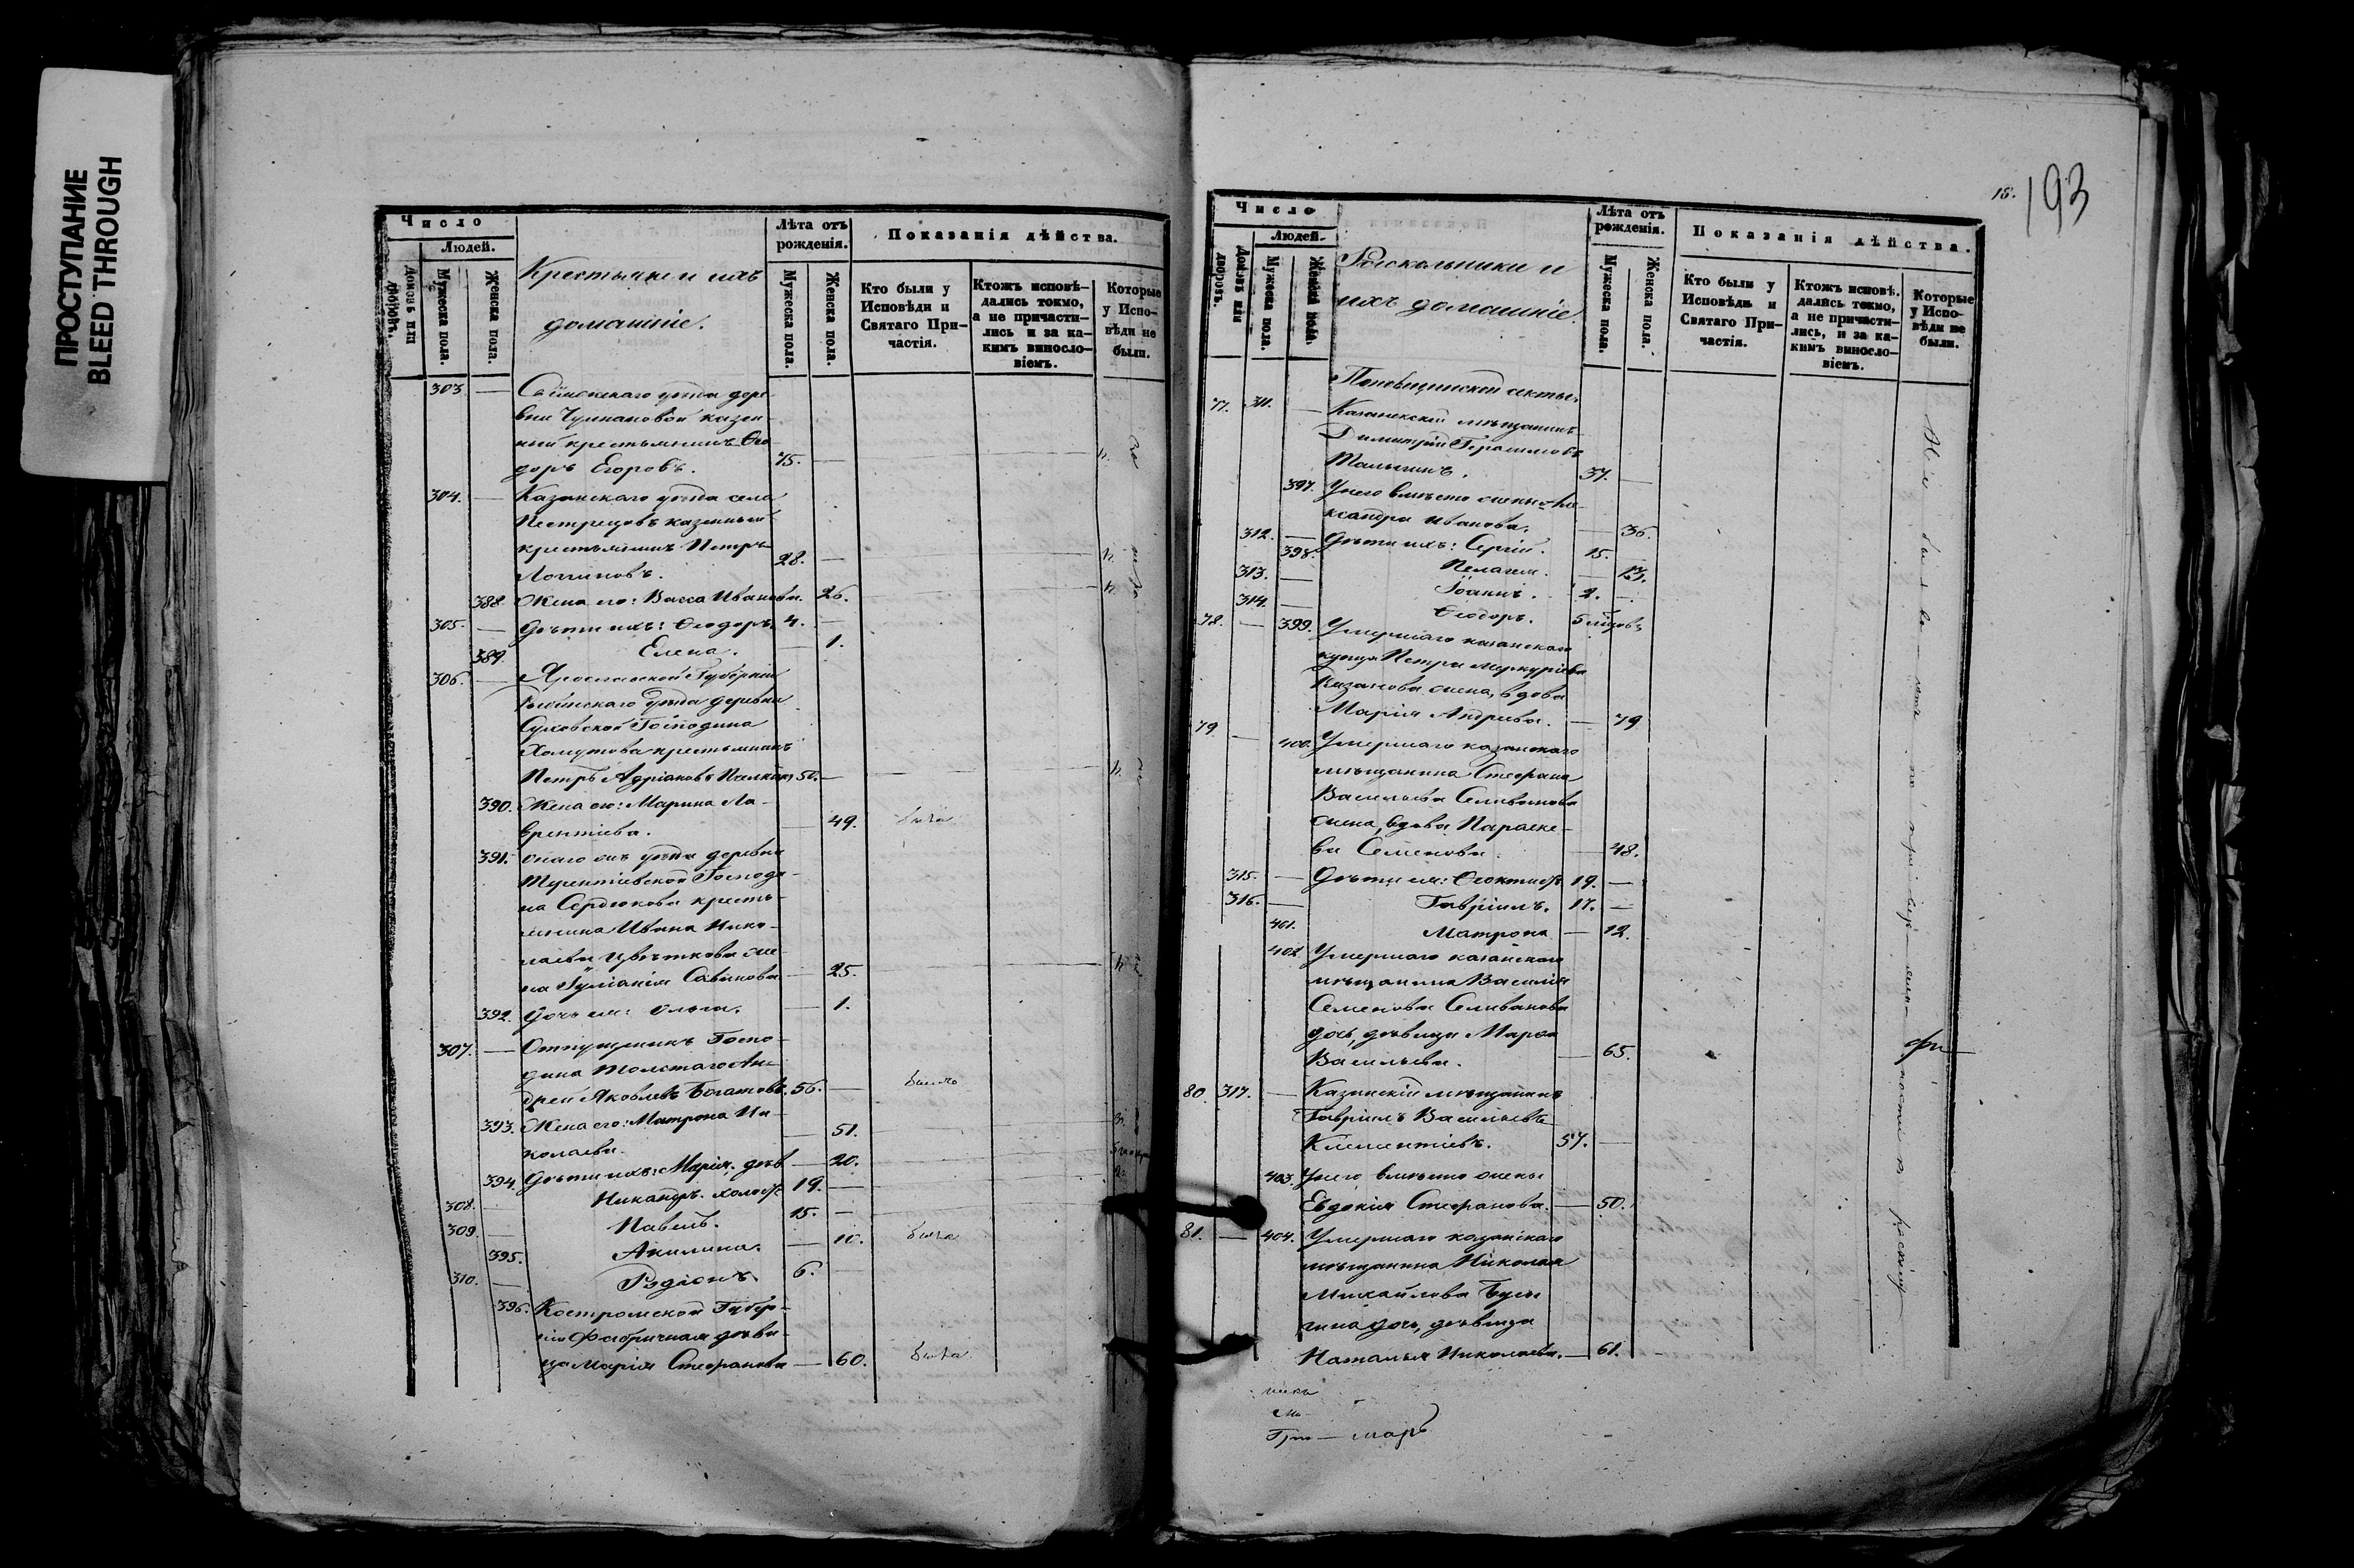 ПРОСТУПАНИЕ
BLEED THROUGH
Число
Людей.
Домовъ или дворовъ.
Мужеска пола.
Женска пола.
Крестьяне и ихъ
домашніе.
Лѣта отъ
рожденія.
Мужеска пола.
Женска пола.
Показанія дѣйства.
Кто были у
Исповѣди и
Святаго При-
частія.
Ктожъ исповѣ-
дались токмо,
а не причасти-
лись и за ка-
кимъ винosло-
віемъ.
Которые
у Испо-
вѣди не
были.
303. — уѣзда дере-
вни казен-
ный крестьянинъ Ѳео-
доръ Егоровъ. 75. —
304. — Казанскаго уѣзда села
Пестрецовъ казенный
крестьянинъ Петръ
Логиновъ. 28. —
388. Жена его: Васса Иванова. 26.
305. — Дѣти ихъ: Ѳеодоръ. 4. —
389. Елена. — 1.
306. — Ярославской Губерніи
уѣзда деревни
Суховской Господина
Хомутова крестьянинъ
Петръ Адріановъ 50. —
390. Жена его: Марина Ла-
врентіева. — 49. была
391. онаго жъ уѣзда деревни
Терентіевской Господи-
на Сердюкова кресть-
янина Ивана Нико-
лаева Цвѣткова же-
на Іуліанія Савинова — 25.
392. Дочь ея: Ольга. — 1.
307. — Отпущеникъ Госпо-
дина Толстаго Ан-
дрей Яковлевъ Богатовъ. 56. — былъ
393. Жена его: Матрона Ни-
колаева. — 51.
394. Дѣти ихъ: Марія. дѣв. — 20.
308. Никандръ. холостъ 19. —
309. — Павелъ. 15. —
395. Акилина. — 10. была
310. — Родіонъ. 6. —
396. Костромской Губер-
ніи фабричная дѣви-
ца Марія Стефанова — 60. была
18. 193
Число
Людей.
Домовъ или дворовъ.
Мужеска пола.
Женска пола.
Раскольники и
ихъ домашніе.
Лѣта отъ
рожденія.
Мужеска пола.
Женска пола.
Показанія дѣйства.
Кто были у
Исповѣди и
Святаго При-
частія.
Ктожъ исповѣ-
дались токмо,
а не причасти-
лись, и за ка-
кимъ винosло-
віемъ.
Которые
у Испо-
вѣди не
были.
Поповщинской секты.
77. 311. — Казанскій мѣщанинъ
Димитрій Герасимовъ
37. —
397. У него вмѣсто жены Але-
ксандра Иванова. — 36.
312. — Дѣти ихъ: Сергій. 15. —
398. Пелагея. — 13.
313. — Іоаннъ. 2. —
314. — Ѳеодоръ. 5 мѣсяцовъ
78. — 399. Умершаго казанскаго
купца Петра Меркуріева
жена, вдова
Марія Андреева. — 79
79. — 400. Умершаго казанскаго
мѣщанина Стефана
Васильева Селиванова
жена, вдова Параске-
ва Семенова. — 48.
315. — Дѣти ея: Ѳеоктистъ 19. —
316. — Гавріилъ. 17. —
401. Матрона — 12.
402. Умершаго казанскаго
мѣщанина Василія
Семенова Селиванова
дочь, дѣвица Марѳа
Васильева. — 65.
80. 317. — Казанскій мѣщанинъ
Гавріилъ Васильевъ
Климентіевъ. 57. —
403. У него вмѣсто жены
Евдокія Стефанова. — 50.
81. — 404. Умершаго казанскаго
мѣщанина Николая
Михайлова
дочь, дѣвица
Наталья Николаева. — 61.